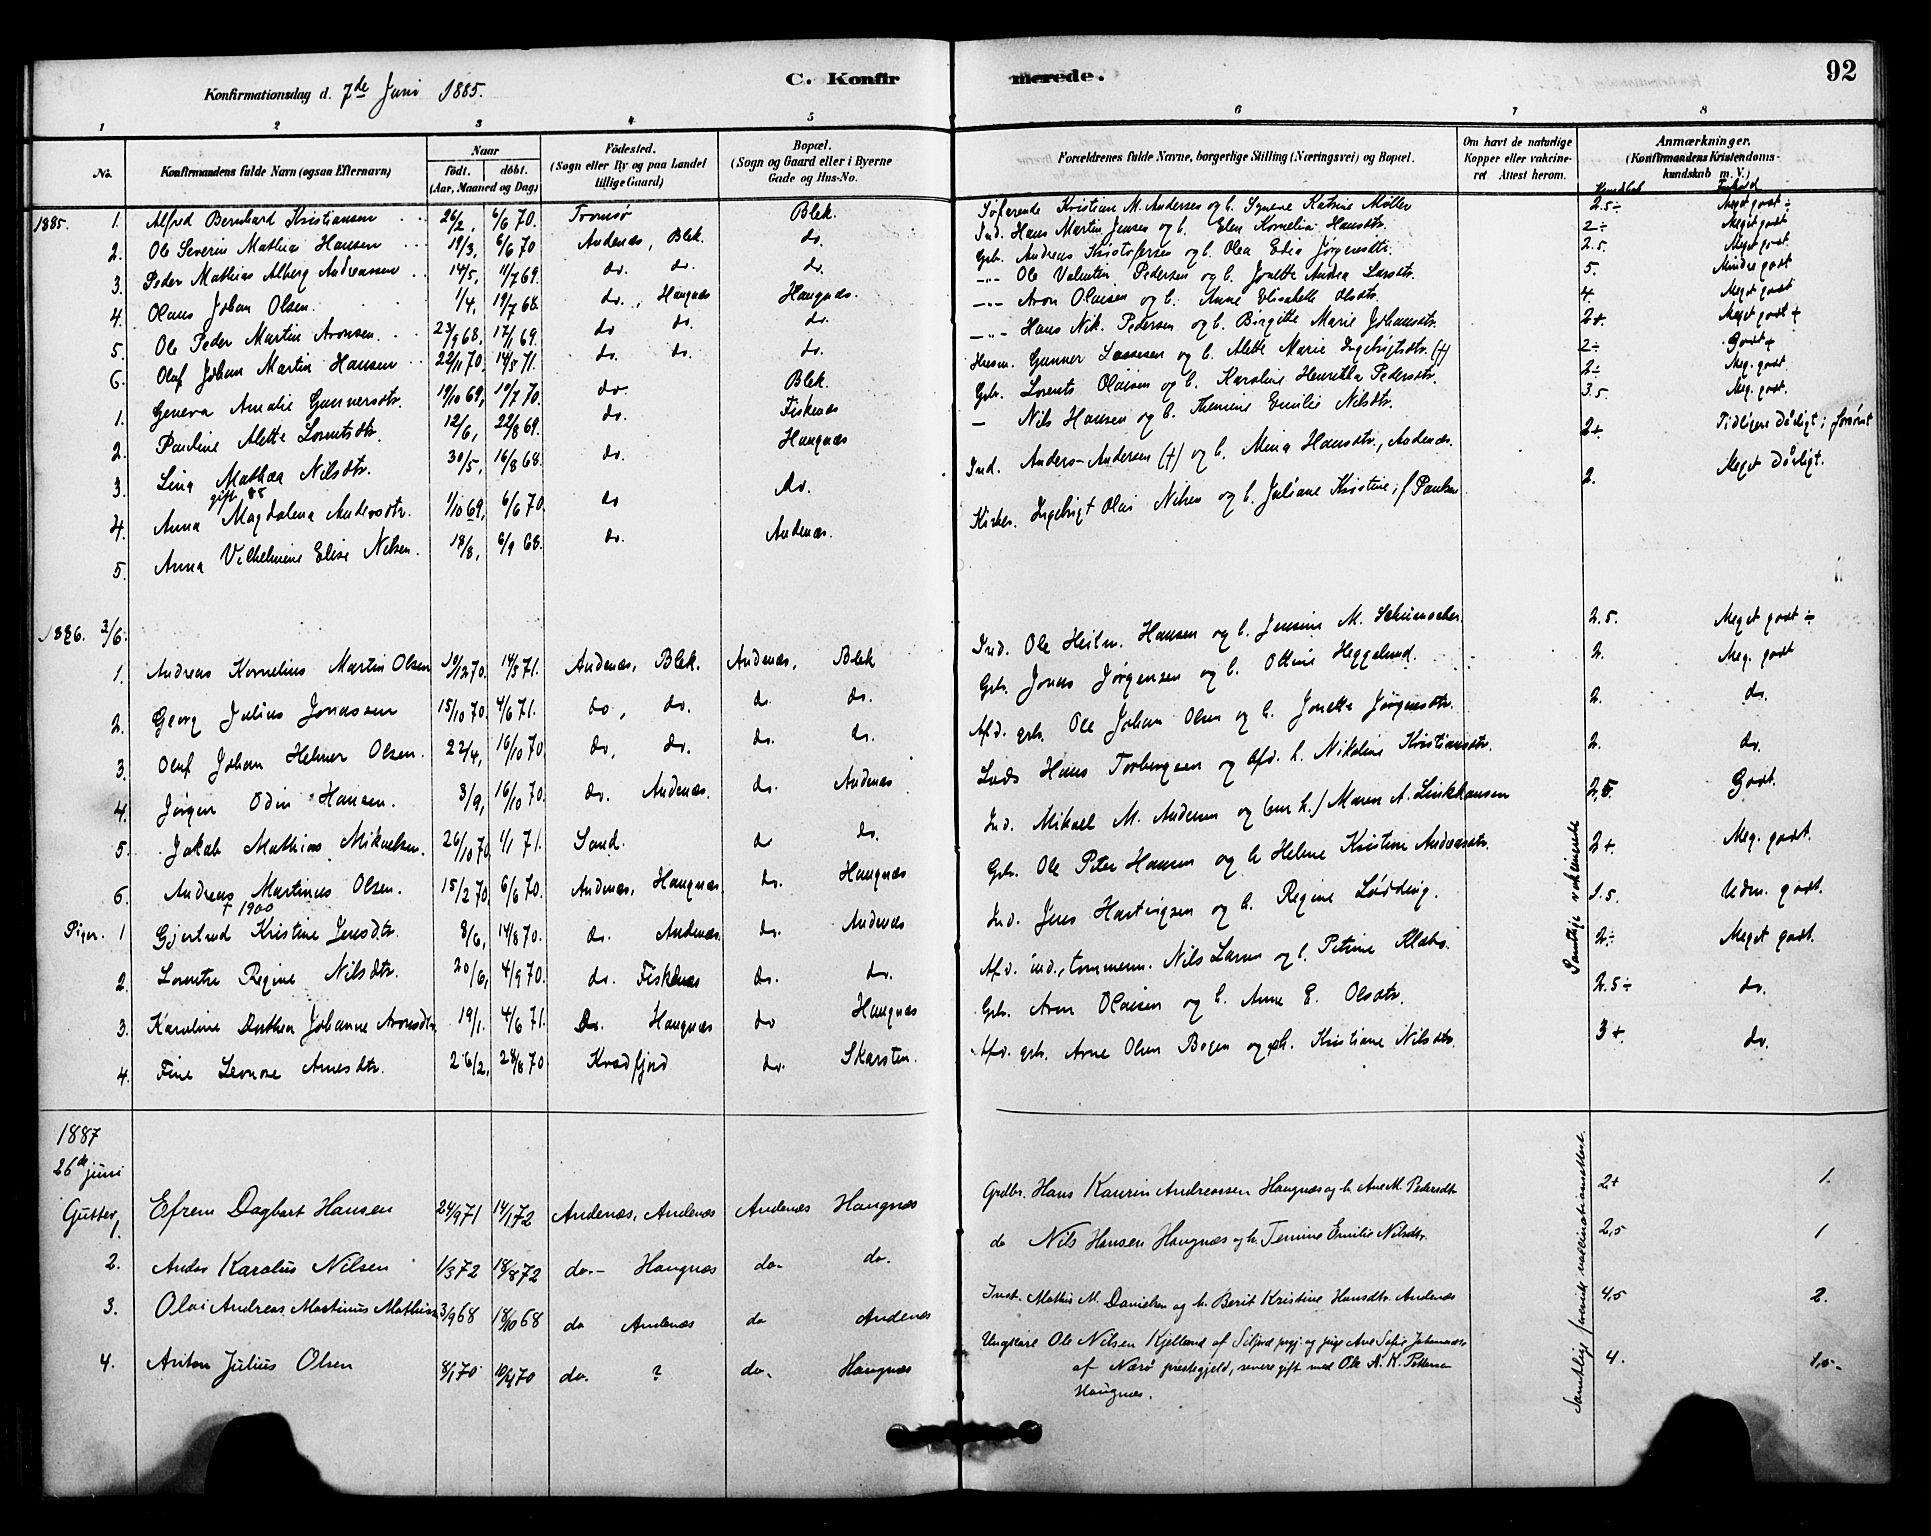 C. Konfirmerede.
92
Konfirmationsdag d. 7de Juni 1885.
1 2 3 4 5 6 7 8
No.
Konfirmandens fulde Navn (ogsaa Efternavn)
Naar
födt. döbt.
(Aar, Maaned og Dag)
Födested.
(Sogn eller By og paa Landet
tillige Gaard)
Bopæl.
(Sogn og Gaard eller i Byerne
Gade og Hus-No.
Forældrenes fulde Navne, borgerlige Stilling (Næringsvei) og Bopæl.
Om havt de naturlige
Kopper eller vakcine-
ret Attest herom.
Anmærkninger.
(Konfirmandens Kristendoms-
kundskab m. V.)
Kundskab Forhold
1885. 1. Alfred Bernhard Kristiansen 26/2, 6/6 70. Tromsø Blek. Søfarende Kristian M. Andersen og h. Katrine Møller 2.5÷ Meget godt ÷
2. Ole Severin Mathias Hansen 19/3, 6/6 70 Andenæs, Blek. do. Ind. Hans Martin Jensen og h. Elen Kornelia Hansdtr. 2÷ Meget godt
3. Peder Mathias Alberg Andreassen 14/5, 11/7 69. do. do. do. Gbr. Andreas Kristofersen og h. Olea Edia Jørgensdtr. 2.5. Meget godt.
4. Olaus Johan Olsen. 1/4, 19/7 68. do., Haugnæs Haugnæs. -"- Ole Valentin Pedersen og h. Jonette Andrea Larsdtr. 5. Mindre godt
5. Ole Peder Martin Aronsen. 23/9 68, 17/1 69. do do. do. -"- Aron Olaisen og h. Anne Elisabeth Olsdtr. 4. Meget godt
6. Olaf Johan Martin Hansen 22/11 70, 14/5 71. do. do. do. -"- Hans Nik. Pedersen og h. Birgitte Marie Johansdtr. 2+. Meget godt ÷
1. Geneva Amalie Gunnersdtr. 19/10 69, 19/7 70. do. Blek. Husm. Gunner Lassesen og h. Alette Marie Ingebrigtsdtr. (†) 2÷ Godt +
2. Pauline Alette Lorentsdtr. 12/6, 22/8 69. do. Fiskenæs Gbr. Lorents Olaisen og h. Karoline Henrikka Pedersdtr. 2÷ Meg. godt.
3. Lina Mathea Nilsdtr. 30/5, 16/8 68. do. Haugnæs — Nils Hansen og h. Themine Emilie Nilsdtr. 3.5 Meg. godt.
gift 88
4. Anna Magdalena Andersdtr. 1/10 69, 6/6 70. do Do. Ind. Anders Andersen (†) og h. Mina Hansdtr., Andenæs. 2+. Tidligere Dårligt;
5. Anna Vilhelmine Elise Nilsen. 18/8, 6/9 68. do. Andenæs. Kirkes. Ingebrigt Olai Nilsen og h. Juliane Kristine, f. Paulsen 2. Meget Dårligt.
1886. 3/6.
1. Andreas Kornelius Martin Olsen 19/12 70. 14/5 71. Andenæs, Blek. Andenæs, Blek Ind. Ole Heilm. Hansen og h. Jensine M. Schumacher 2.5. Meget godt ÷
2. Georg Julius Jonassen 15/10 70. 4/6 71. do, do. do do. Gbr. Jonas Jørgensen og h. Ottine Heggelund. 2. Meg. godt
3. Olaf Johan Helmer Olsen. 22/4, 16/10 70 do, do. do. do. Afd. gbr. Ole Johan Olsen og h. Jonetta Jørgensdtr. 2. do.
4. Jørgen Odin Hansen. 3/9, 16/10 70. do. Andenæs. do. Andenæs Lods Hans Torbergsen og Afd. h. Nikoline Kristiansdtr. 2. do.
5. Jakob Mathias Mikaelsen. 26/10 70 4/1 71. Sand. do do. Ind. Mikael M. Andersen og (nu h.) Maren A. Linkhausen 2.5. Godt.
6. Andreas Martinus Olsen. 15/2 70. 6/6 70. Andenæs, Haugnæs. do. Haugnæs Gbr. Ole Peter Hansen og h Helene Kristine Andreasdtr. 2+. Meg. godt.
† 1900
Piger. 1 Gjertrud Kristine Jensdtr. 8/6, 14/8 70. do. Andenæs. do. Andenæs Ind. Jens Hartvigsen og h. Regine Lødding. 1.5. Udm. godt.
2. Lorentze Regine Nilsdtr. 20/6, 4/9 70. do. Fiskenæs do. do. Afd. ind., tømmerm. Nils Larsen og h. Petrine Klæbo. 2÷ Meget godt.
3. Karoline Dorthea Johanne Aronsdtr 19/1. 4/6 71. Do. Haugnæs do Haugnæs Gbr. Aron Olaisen og h. Anne E. Olsdtr. 2.5÷ do.
4. Fine Leonore Arnesdtr. 26/2, 28/8 70 Kvædfjord do. Skarsten. Afd. gbr. Arne Olsen Bogen og h. Kristiane Nilsdtr. 3+ do.
Samtlige vakcinerede
1887
26de juni
Gutter
1. Efrem Dagbart Hansen 24/9 71 14/1 72 Andenæs, Andenæs Andenæs Haugnæs Grdbr. Hans Kaurin Andreassen Haugnæs og h. Ane M. Pedersdtr 2+ 1.
2. Andor Karolus Nilsen 1/3 72 18/8 72 do.- Haugnæs do- do. do Nils Hansen Haugnæs og h. Temine Emilie Nilsdtr. 2,5 1
3. Olai Andreas Martinus Mathisen 3/9 68 18/10 68 do Andenæs do Andenæs Inst. Mathis M. Danielsen og h. Berit Kristine Hansdtr. Andenæs 4,5 2.
4. Anton Julius Olsen 8/1 70 10/4 70 do. ? do. Haugnæs Ungkarl Ole Nilsen Kjelland af prgj. og pige Ane Sofie
af Nærø præstegjeld, senere gift med Ole A. K. Pettersen 4. 1,5-
Haugnæs.